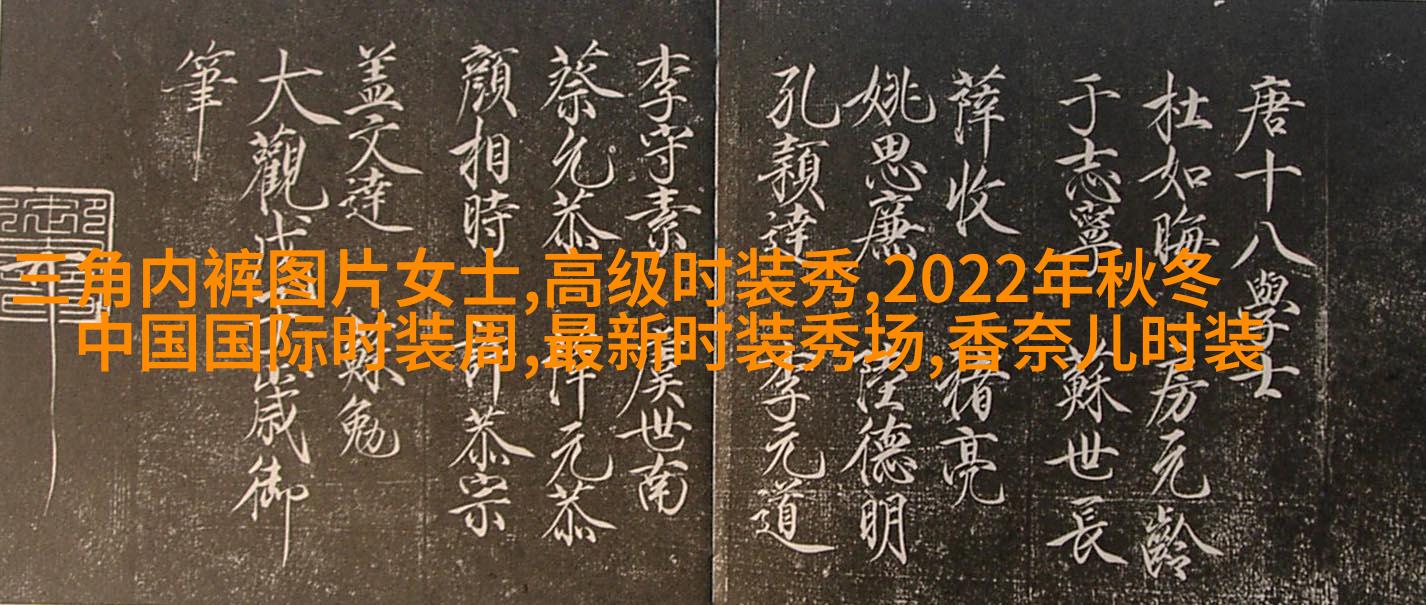 唐十八學士
杜如晦 房元齡
于志寧 蘇世長
薛收 褚亮
姚思廉 陸德明
孔穎達 李元道
李守素 虞世南
蔡允恭 薛元恭
顏相時 許恭宗
盖文達 蘇勉
大觀戊 歲御
筆
三角内裤图片女士,高级时装秀,2022年秋冬
中国国际时装周,最新时装秀场,香奈儿时装